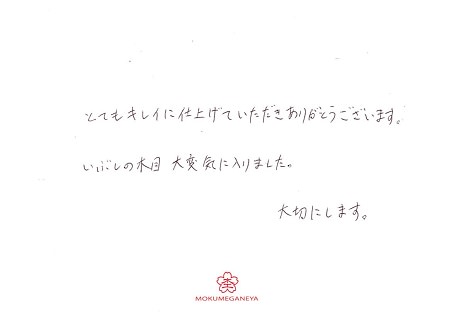 とてもキレイに仕上げていただきありがとうございます。
いぶしの木目 大変気に入りました。
大切にします。
MOKUMEGANEYA